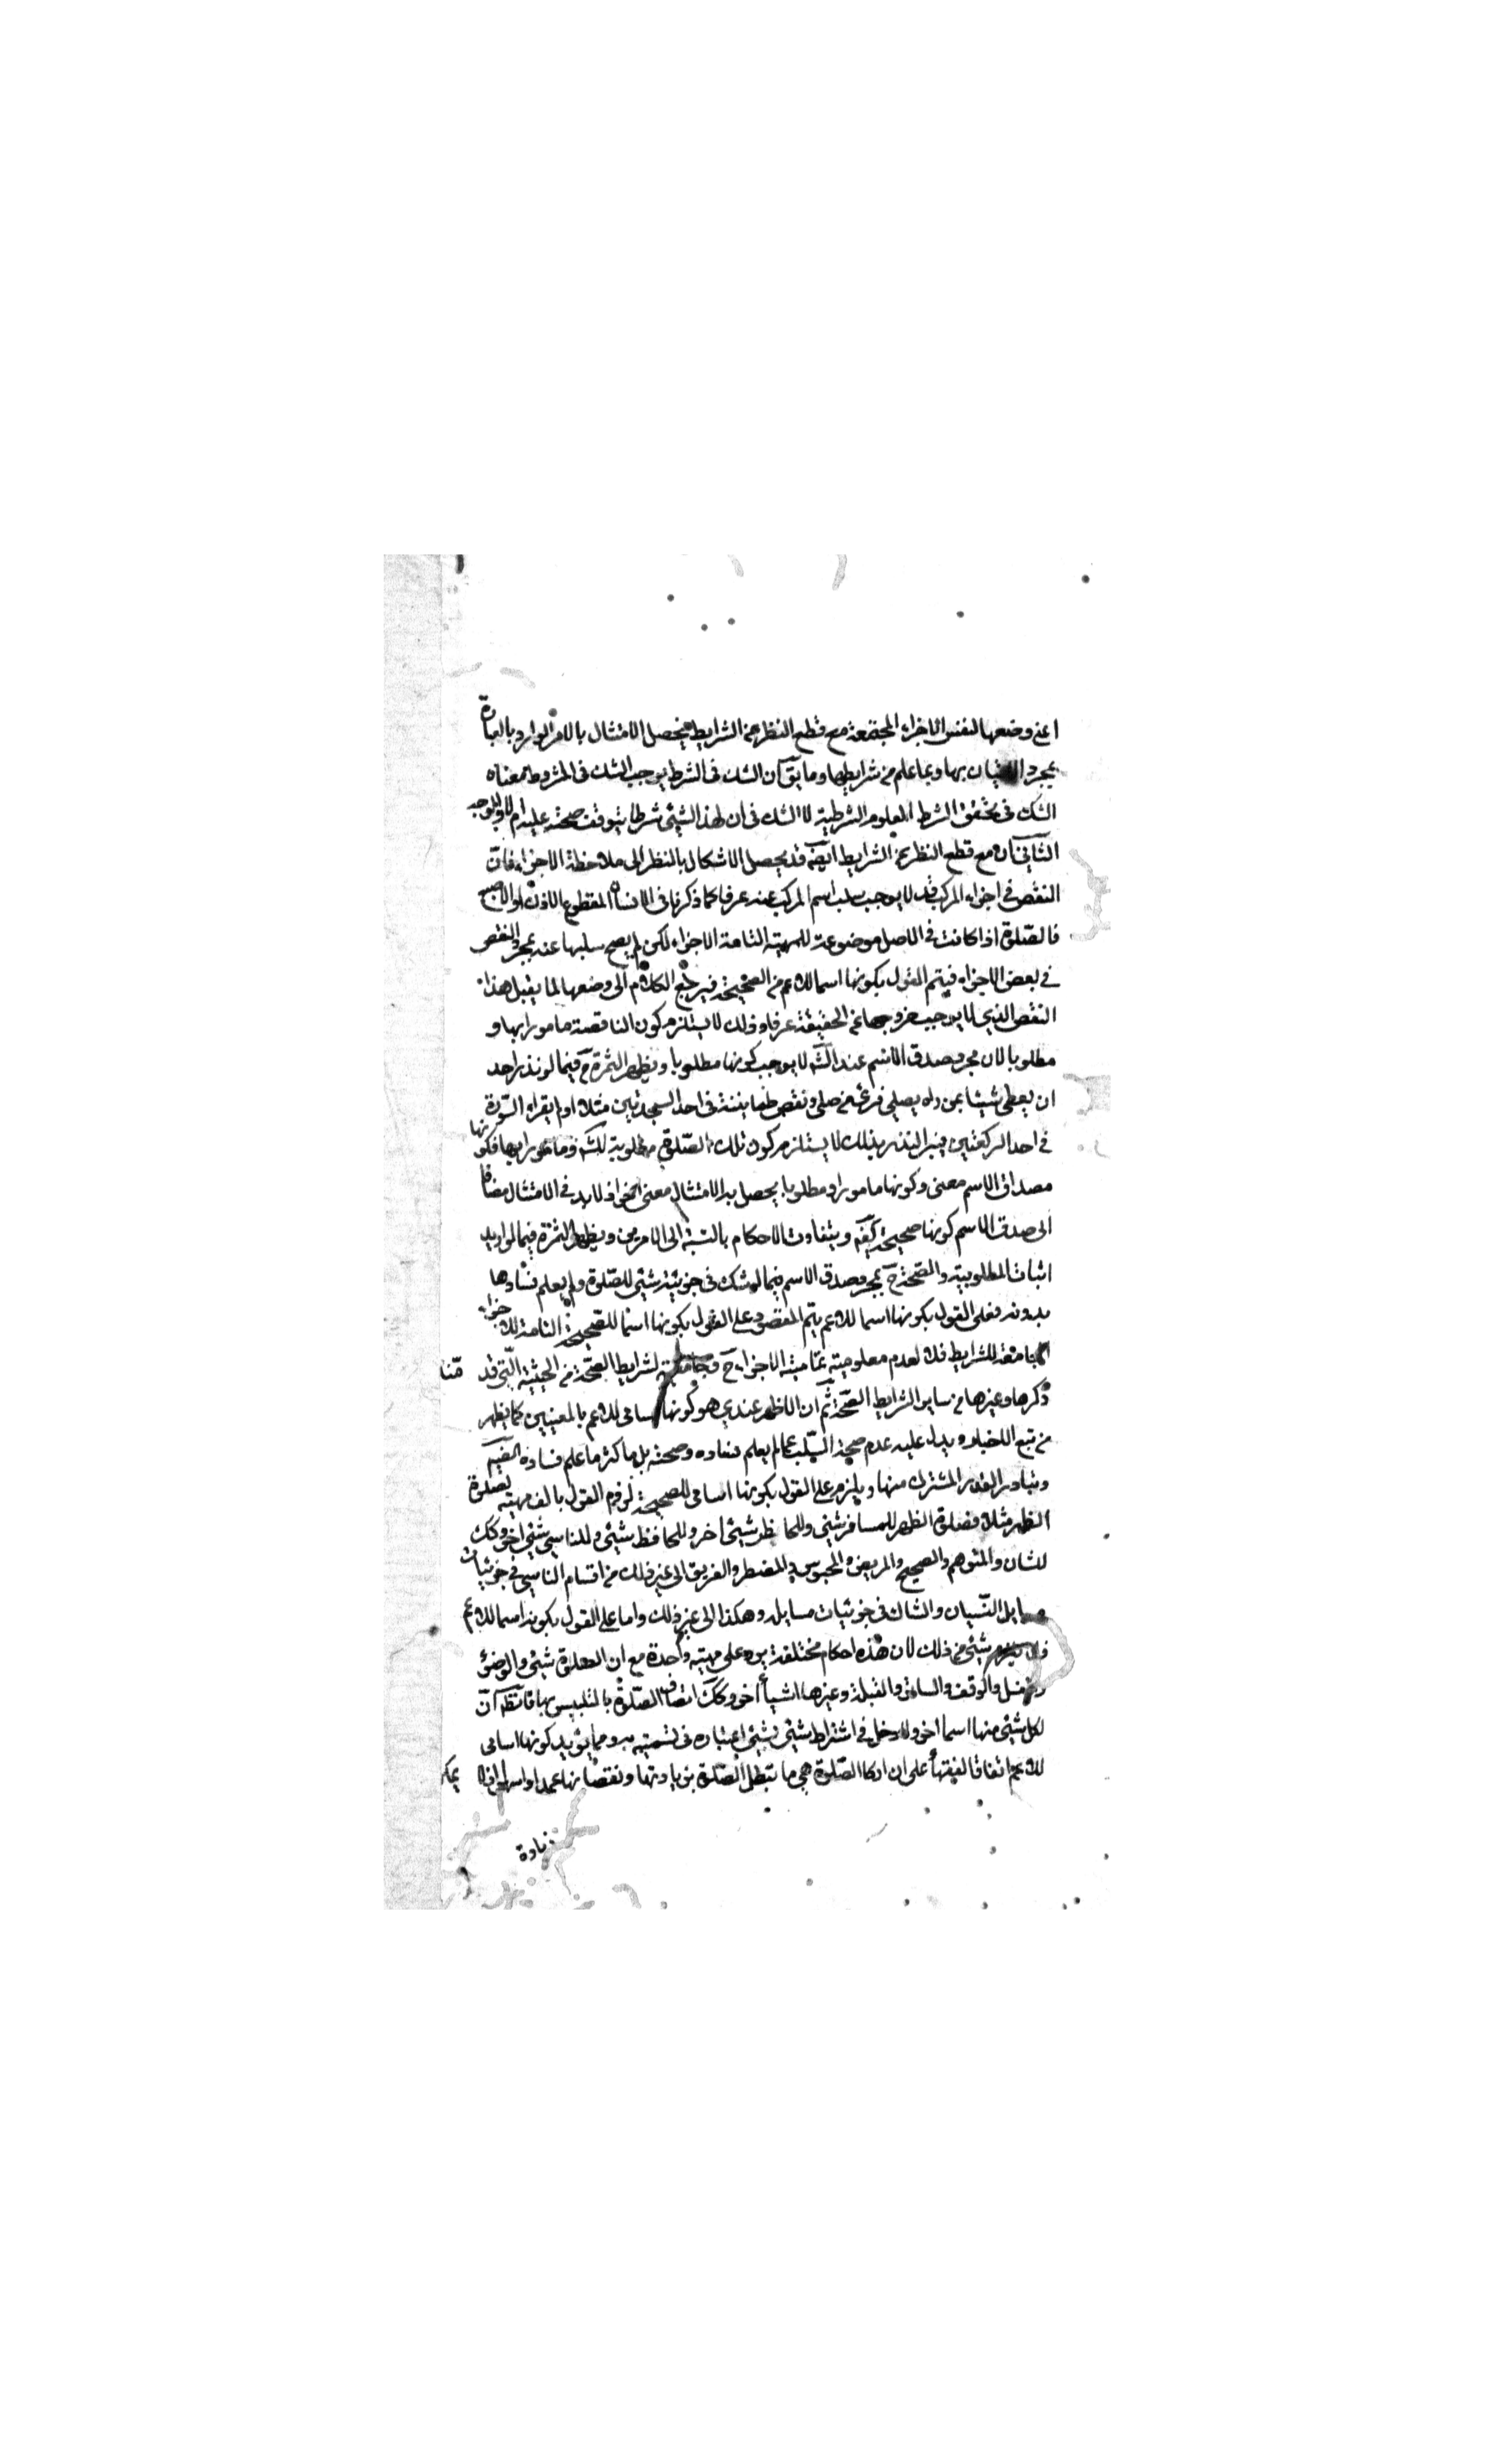 اعنى وضعها لنفس الاجزاء المجتمعة مع قطع النظر عن الشرايط فيحصل الامتثال بالامر الوارد بالعبادة
بمجرد الاتيان بها وبما علم من شرايطها وما يق ان الشك فى الشرط يوجب الشك فى المشروط معناه
الشك فى تحقق الشرط المعلوم الشرطية لا الشك فى ان لهذا الشيئ شرطا يتوقف صحته عليه ام لا والوجه
الثانى ان مع قطع النظر عن الشرايط ايضه قد يحصل الاشكال بالنظر الى ملاحظة الاجزاء فان
النقص فى اجزاء المركب قد لا يوجب سلب اسم المركب عنه عرفا كما ذكرنا فى الانسان المقطوع الاذن او الاصبع
فالصلوة اذا كانت فى الاصل موضوعة للمهية التامة الاجزاء لكن لم يصح سلبها عنه بمجرد النقص
فى بعض الاجزاء فيتم القول بكونها اسما للاعم من الصحيحة فيرجع الكلام الى وضعها لما يقبل هذا
النقص الذى لا يوجب خروجها عن الحقيقة عرفا وذلك لا يستلزم كون الناقصة مامورا بها و
مطلوبا لان مجرد صدق الاسم عند الشه لا يوجب كونها مطلوبا ويظهر الثمرة ح فيما لو نذر احد
ان يعطى شيئا بمن راه يصلى فرءه من صلى ونقص طمانينة فى احد السجدتين مثلا او لم يقراء السورة
فى احد الركعتين فيبر النذر بذلك لا يستلزم كون تلك الصلوة مطلوبة للشه ومامورا بها فكونها
مصداق الاسم معنى وكونها مامورا ومطلوبا يحصل به الامتثال معنى اخر اذ لا بد فى الامتثال مضافا
الى صدق الاسم كونها صحيحة كيفه ويتفاوت الاحكام بالنسبة الى الامرين ويظهر الثمرة فيما لو اريد
اثبات المطلوبية والصحة ح بمجرد صدق الاسم فيما لو شك فى جزئية شيئ للصلوة ولم يعلم فسادها
بدونه فعلى القول بكونها اسما للاعم يتم المقصود على القول بكونها اسما للصحيحة التامة الاجزاء
الجامعة للشرايط فلا لعدم معلومية تمامية الاجزاء ح وجامعية لشرايط الصحة من الحيثية التى قدمنا
ذكرها وغيرها من ساير الشرايط الصحة ثم ان الاظهر عندى هو كونها اسامى للاعم بالمعنيين كما يظهر
من تتبع الاخبار ويدل عليه عدم صحة السلب عما لم يعلم فساده وصحته بل ما كثر ما علم فساده ايضه
وتبادر القدر المشترك منها ويلزم على القول بكونها اسامى للصحيحة لزوم القول بالف مهية لصلوة
الظهر مثلا فصلوة الظهر للمسافر شيئ وللحاظر شيئ اخر وللحافظ شيئ وللناسى شيئ اخر وكك
للشان والمتوهم والصحيح والمريض والمحبوس والمضطر والغريق الى غير ذلك من اقسام الناسى فى جزئيات
مسايل النسيان والشاك فى جزئيات مسايله وهكذا الى غير ذلك واما على القول بكونه اسما للاعم
فلا يلزم شيئ من ذلك لان هذه احكام مختلفة يرد على مهية واحدة مع ان الصلوة شيئ والوضوئ
والغسل والوقف والساتر والقبلة وغيرها اشياء اخر وكك اتصاف الصلوة بالتلبيس بها فانظر ان
لكل شيئ منها اسما اخر ولا دخل فى اشتراط شيئ بشيئ اعتباره فى تسميته به ومما يؤيد كونها اسامى
للاعم اتفاق الفقهاء على ان اركان الصلوة هى ما تبطل الصلوة بزيادتها ونقصانها عمدا او سهوا اذ لا يمكن
زيادة